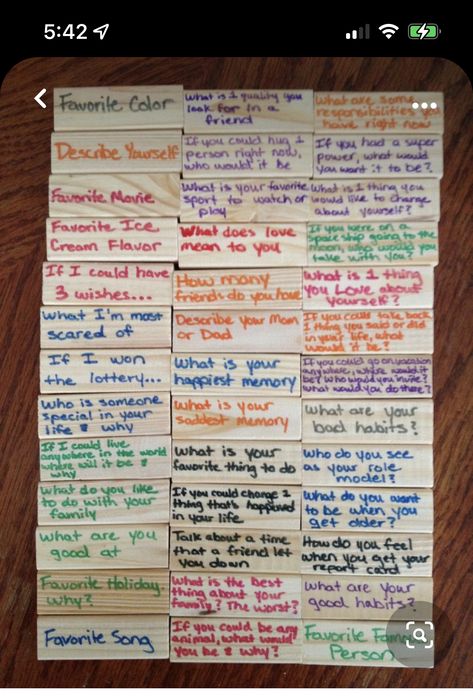 5:42
Favorite Color
What is 1 quality you
look for in a
friend
What are some
responsibilities you
have right now
Describe Yourself
If you could hug 1
person right now,
who would it be
If you had a super
power, what would
you want it to be?
Favorite Movie
What is your favorite
sport to watch or
play
What is 1 thing you
would like to change
about yourself?
Favorite Ice
Cream Flavor
What does love
mean to you
If you were on a
space ship going to the
moon, who would you
take with you?
If I could have
3 wishes...
How many
friends do you have
What is 1 thing
you Love about
yourself?
What I'm most
scared of
Describe your Mom
or Dad
If you could take back
1 thing you said or did
in your life, what
would it be?
If I won
the lottery...
What is your
happiest memory
If you could go on vacation
anywhere, where would it
be? Who would you invite?
What would you do there?
Who is someone
special in your
life & why
What is your
saddest memory
What are your
bad habits?
If I could live
anywhere in the world
where will it be &
why
What is your
favorite thing to do
Who do you see
as your role
model?
What do you like
to do with your
family
If you could change 1
thing that's happened
in your life
What do you want
to be when you
get older?
What are you
good at
Talk about a time
that a friend let
you down
How do you feel
when you get your
report card
Favorite Holiday.
Why?
What is the best
thing about your
family? The worst?
What are your
good habits?
Favorite Song
If you could be any
animal, what would
you be & why?
Favorite
Person